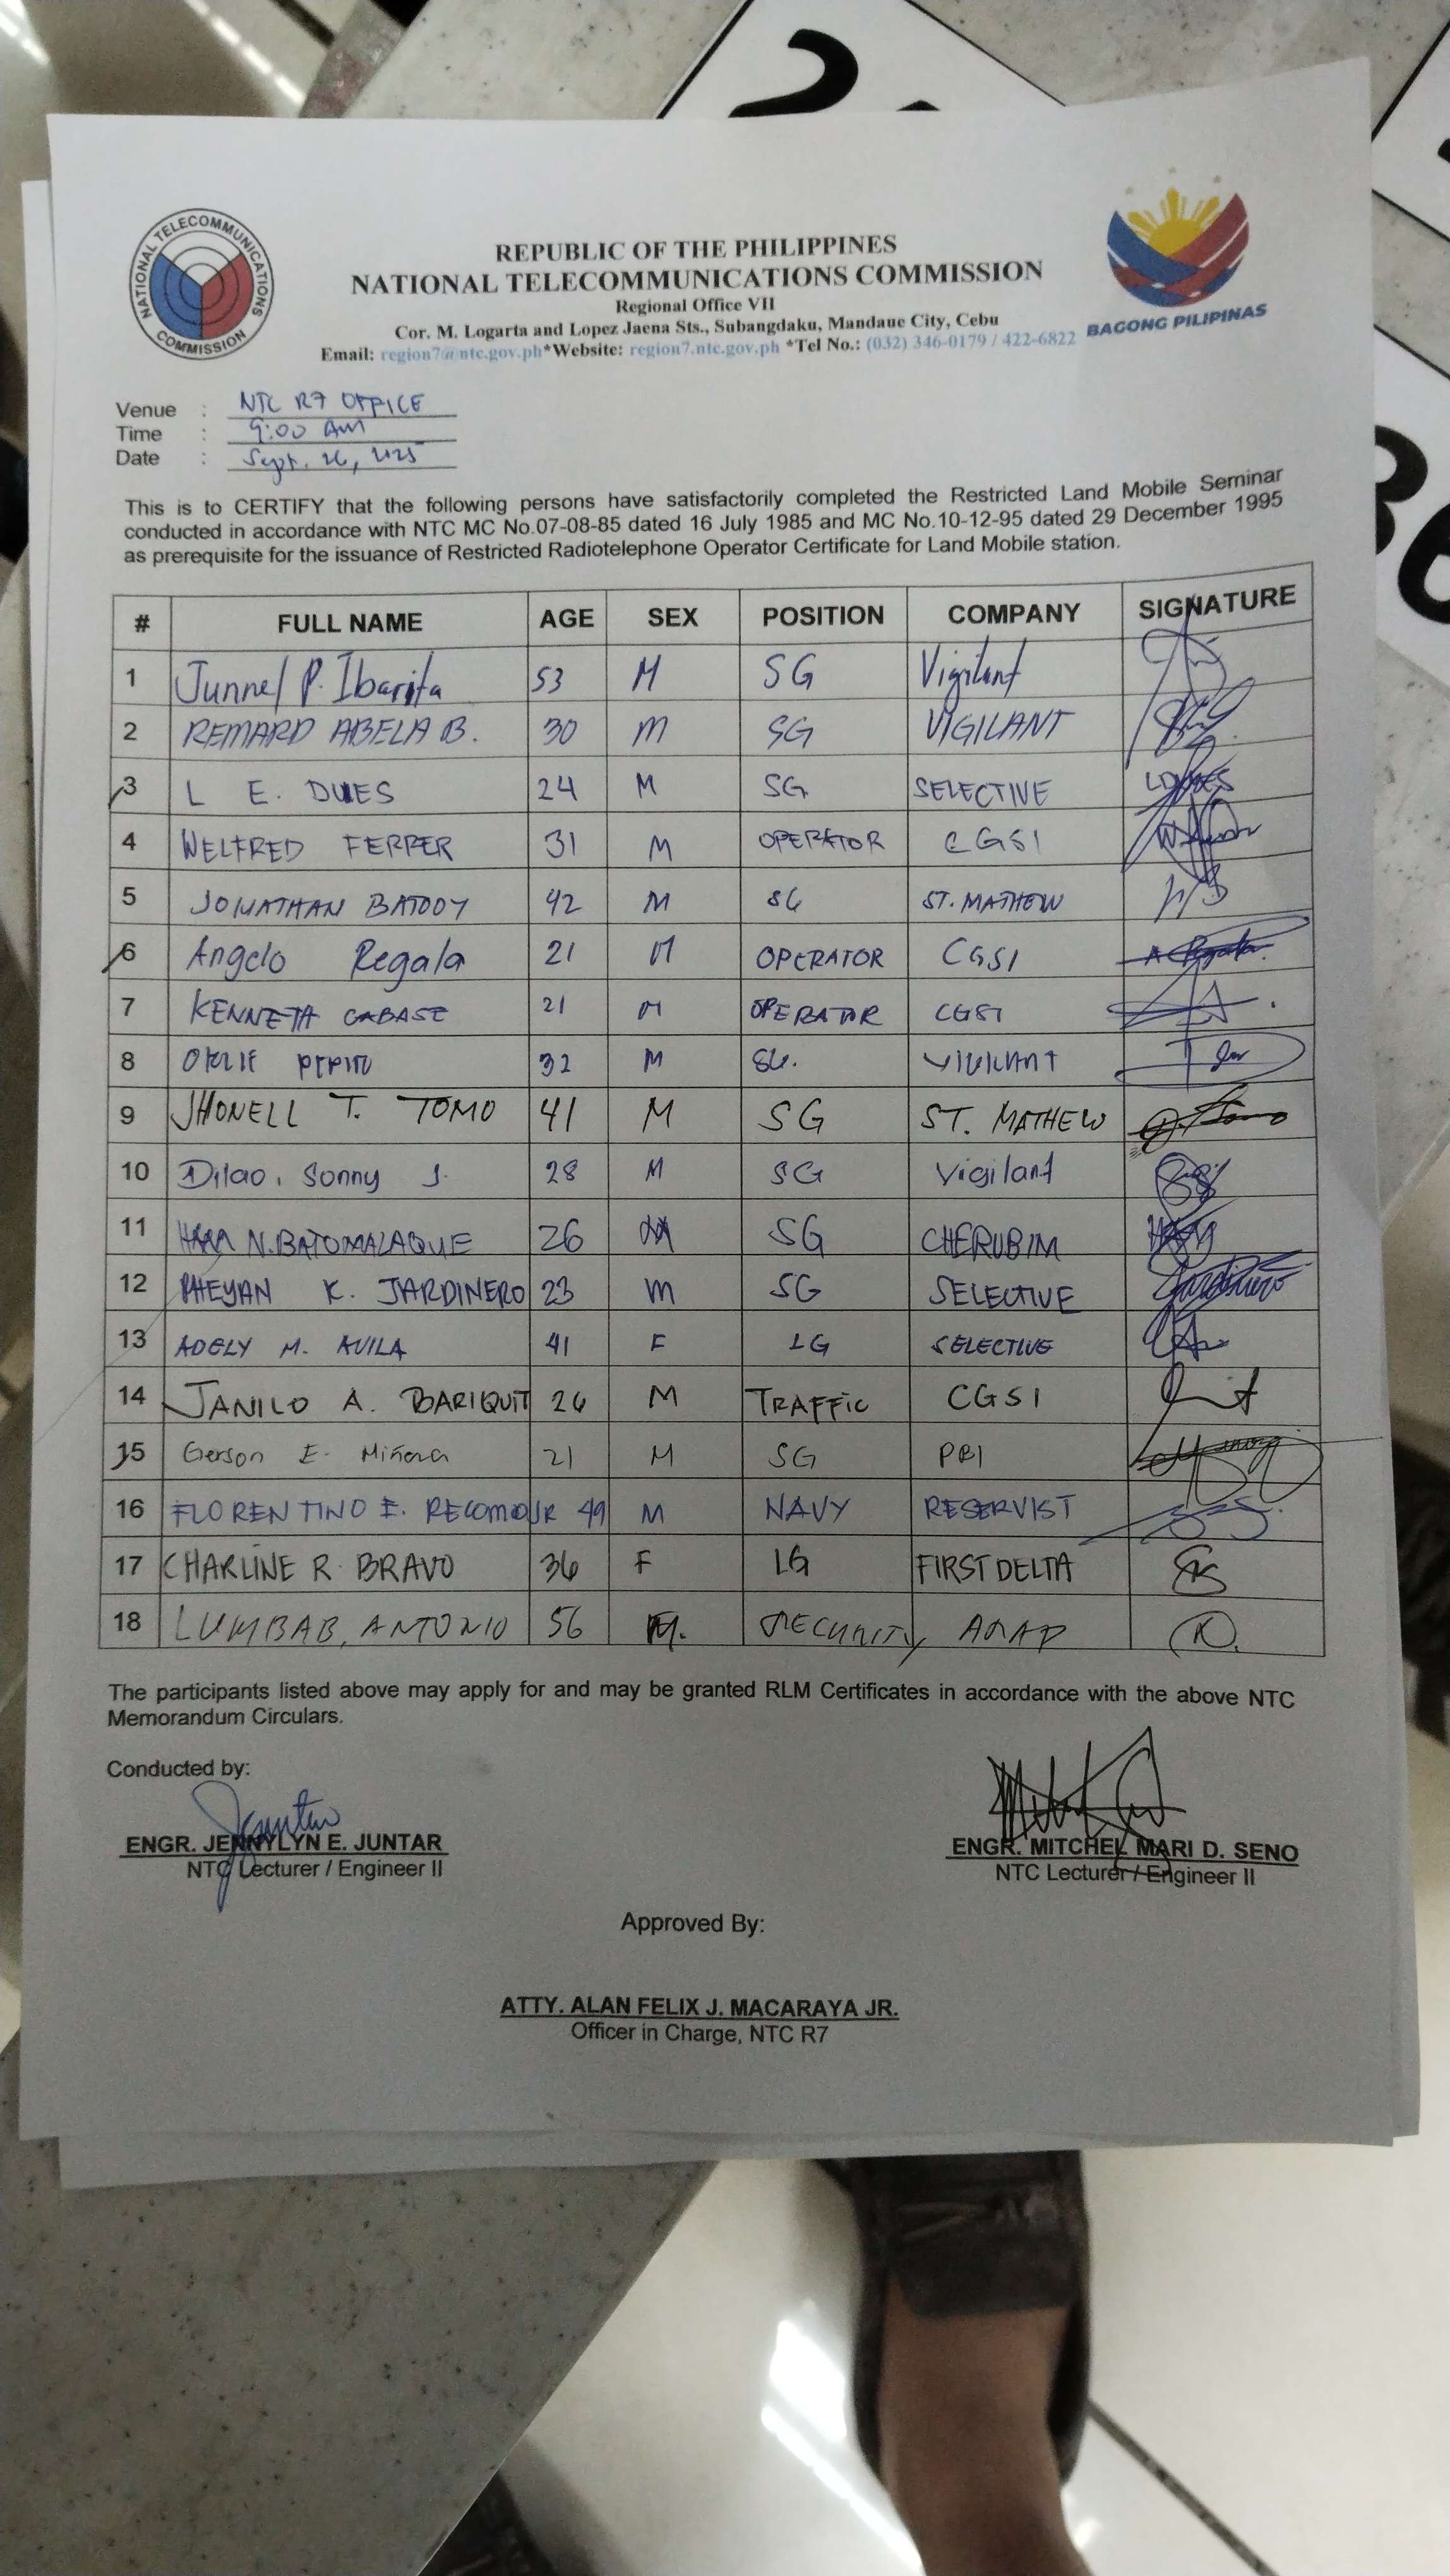 2
36
NATIONAL TELECOMMUNICATIONS COMMISSION
BAGONG PILIPINAS
REPUBLIC OF THE PHILIPPINES
NATIONAL TELECOMMUNICATIONS COMMISSION
Regional Office VII
Cor. M. Logarta and Lopez Jaena Sts., Subangdaku, Mandaue City, Cebu
Email: region7@ntc.gov.ph*Website: region7.ntc.gov.ph *Tel No.: (032) 346-0179 / 422-6822
Venue : NTC R7 OFFICE
Time : 9:00 AM
Date : Sept. 26, 2025
This is to CERTIFY that the following persons have satisfactorily completed the Restricted Land Mobile Seminar
conducted in accordance with NTC MC No.07-08-85 dated 16 July 1985 and MC No.10-12-95 dated 29 December 1995
as prerequisite for the issuance of Restricted Radiotelephone Operator Certificate for Land Mobile station.
# FULL NAME AGE SEX POSITION COMPANY SIGNATURE
1 Junnel P. Ibarita 53 M SG Vigilant
2 REMARD ABELA B. 30 M SG VIGILANT
3 L E. DUES 24 M SG SELECTIVE
4 WELFRED FERRER 31 M OPERATOR CGSI
5 JONATHAN BATODY 42 M SG ST. MATHEW
6 Angelo Regala 21 M OPERATOR CGSI
7 KENNETH CABASE 21 M OPERATOR CGSI
8 PEPITO 32 M SG. VIGILANT
9 JHONELL T. TOMO 41 M SG ST. MATHEW
10 Dilao, Sonny J. 28 M SG Vigilant
11 N. BATOMALAQUE 26 M SG CHERUBIM
12 RHEYAN K. JARDINERO 23 M SG SELECTIVE
13 ADELY M. AVILA 41 F LG SELECTIVE
14 JANILO A. BARIQUIT 26 M TRAFFIC CGSI
15 Gerson E. Miñoza 21 M SG PBI
16 FLORENTINO E. RECOMO JR 49 M NAVY RESERVIST
17 CHARLINE R. BRAVO 36 F LG FIRST DELTA
18 LUMBAB, ANTONIO 56 M. SECURITY
The participants listed above may apply for and may be granted RLM Certificates in accordance with the above NTC
Memorandum Circulars.
Conducted by:
ENGR. JENNYLYN E. JUNTAR
NTC Lecturer / Engineer II
ENGR. MITCHEL MARI D. SENO
NTC Lecturer / Engineer II
Approved By:
ATTY. ALAN FELIX J. MACARAYA JR.
Officer in Charge, NTC R7